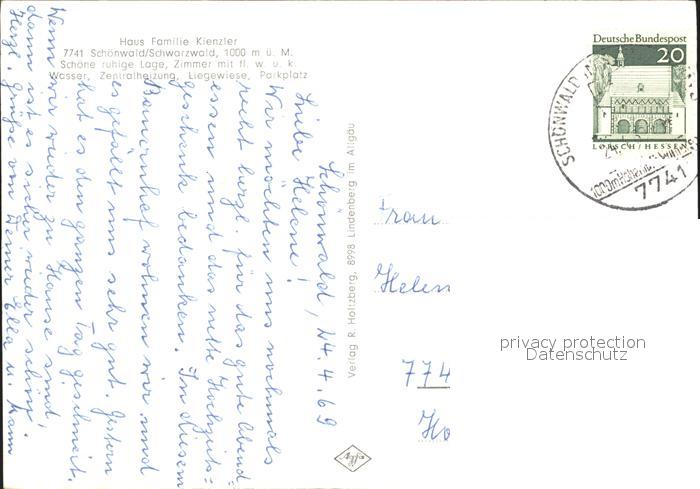 Haus Familie Kienzler
7741 Schönwald/Schwarzwald, 1000 m ü. M.
Schöne ruhige Lage, Zimmer mit fl. w. u. k.
Wasser, Zentralheizung, Liegewiese, Parkplatz
Schönwald, 4.4.69
Liebe Helene!
Wir möchten uns nochmals
recht herzl. für das gute Abend-
essen und das nette Hochzeits-
geschenk bedanken. In diesem
Bauernhof wohnen wir und
es gefällt uns sehr gut. Gestern
hat es den ganzen Tag geschneit.
Wenn wir wieder zu Hause sind,
dann ist es sicher wieder schön.
Herzl. Grüße von Deiner Ella u.
Verlag R. Holtzberg, 8998 Lindenberg im Allgäu
Frau
Helen
774
Ho
Deutsche Bundespost
20
LORSCH/HESSEN
SCHÖNWALD
7741
privacy protection
Datenschutz